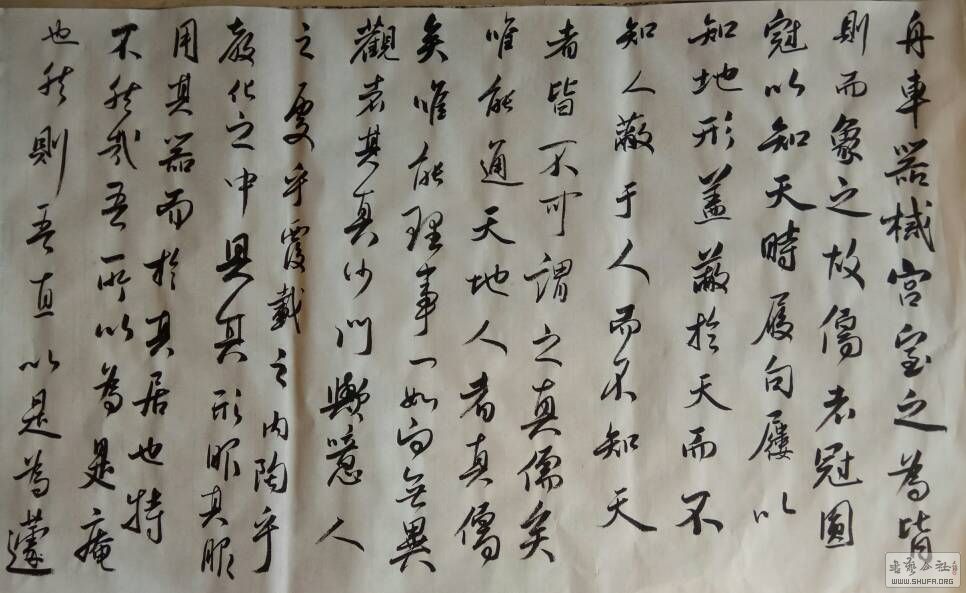 舟車器械宮室之為皆
則而象之故儒者冠圓
冠以知天時履句屨以
知地形蓋蔽於天而不
知人蔽于人而不知天
者皆不可謂之真儒矣
唯能通天地人者真儒
矣唯能理事一如向無異
觀者其真沙門歟噫人
之處乎覆載之內陶乎
教化之中具其形服其服
用其器而於其居也特
不然哉吾所以為是庵
也然則吾直以是為蘧
WWW.SHUFA.ORG